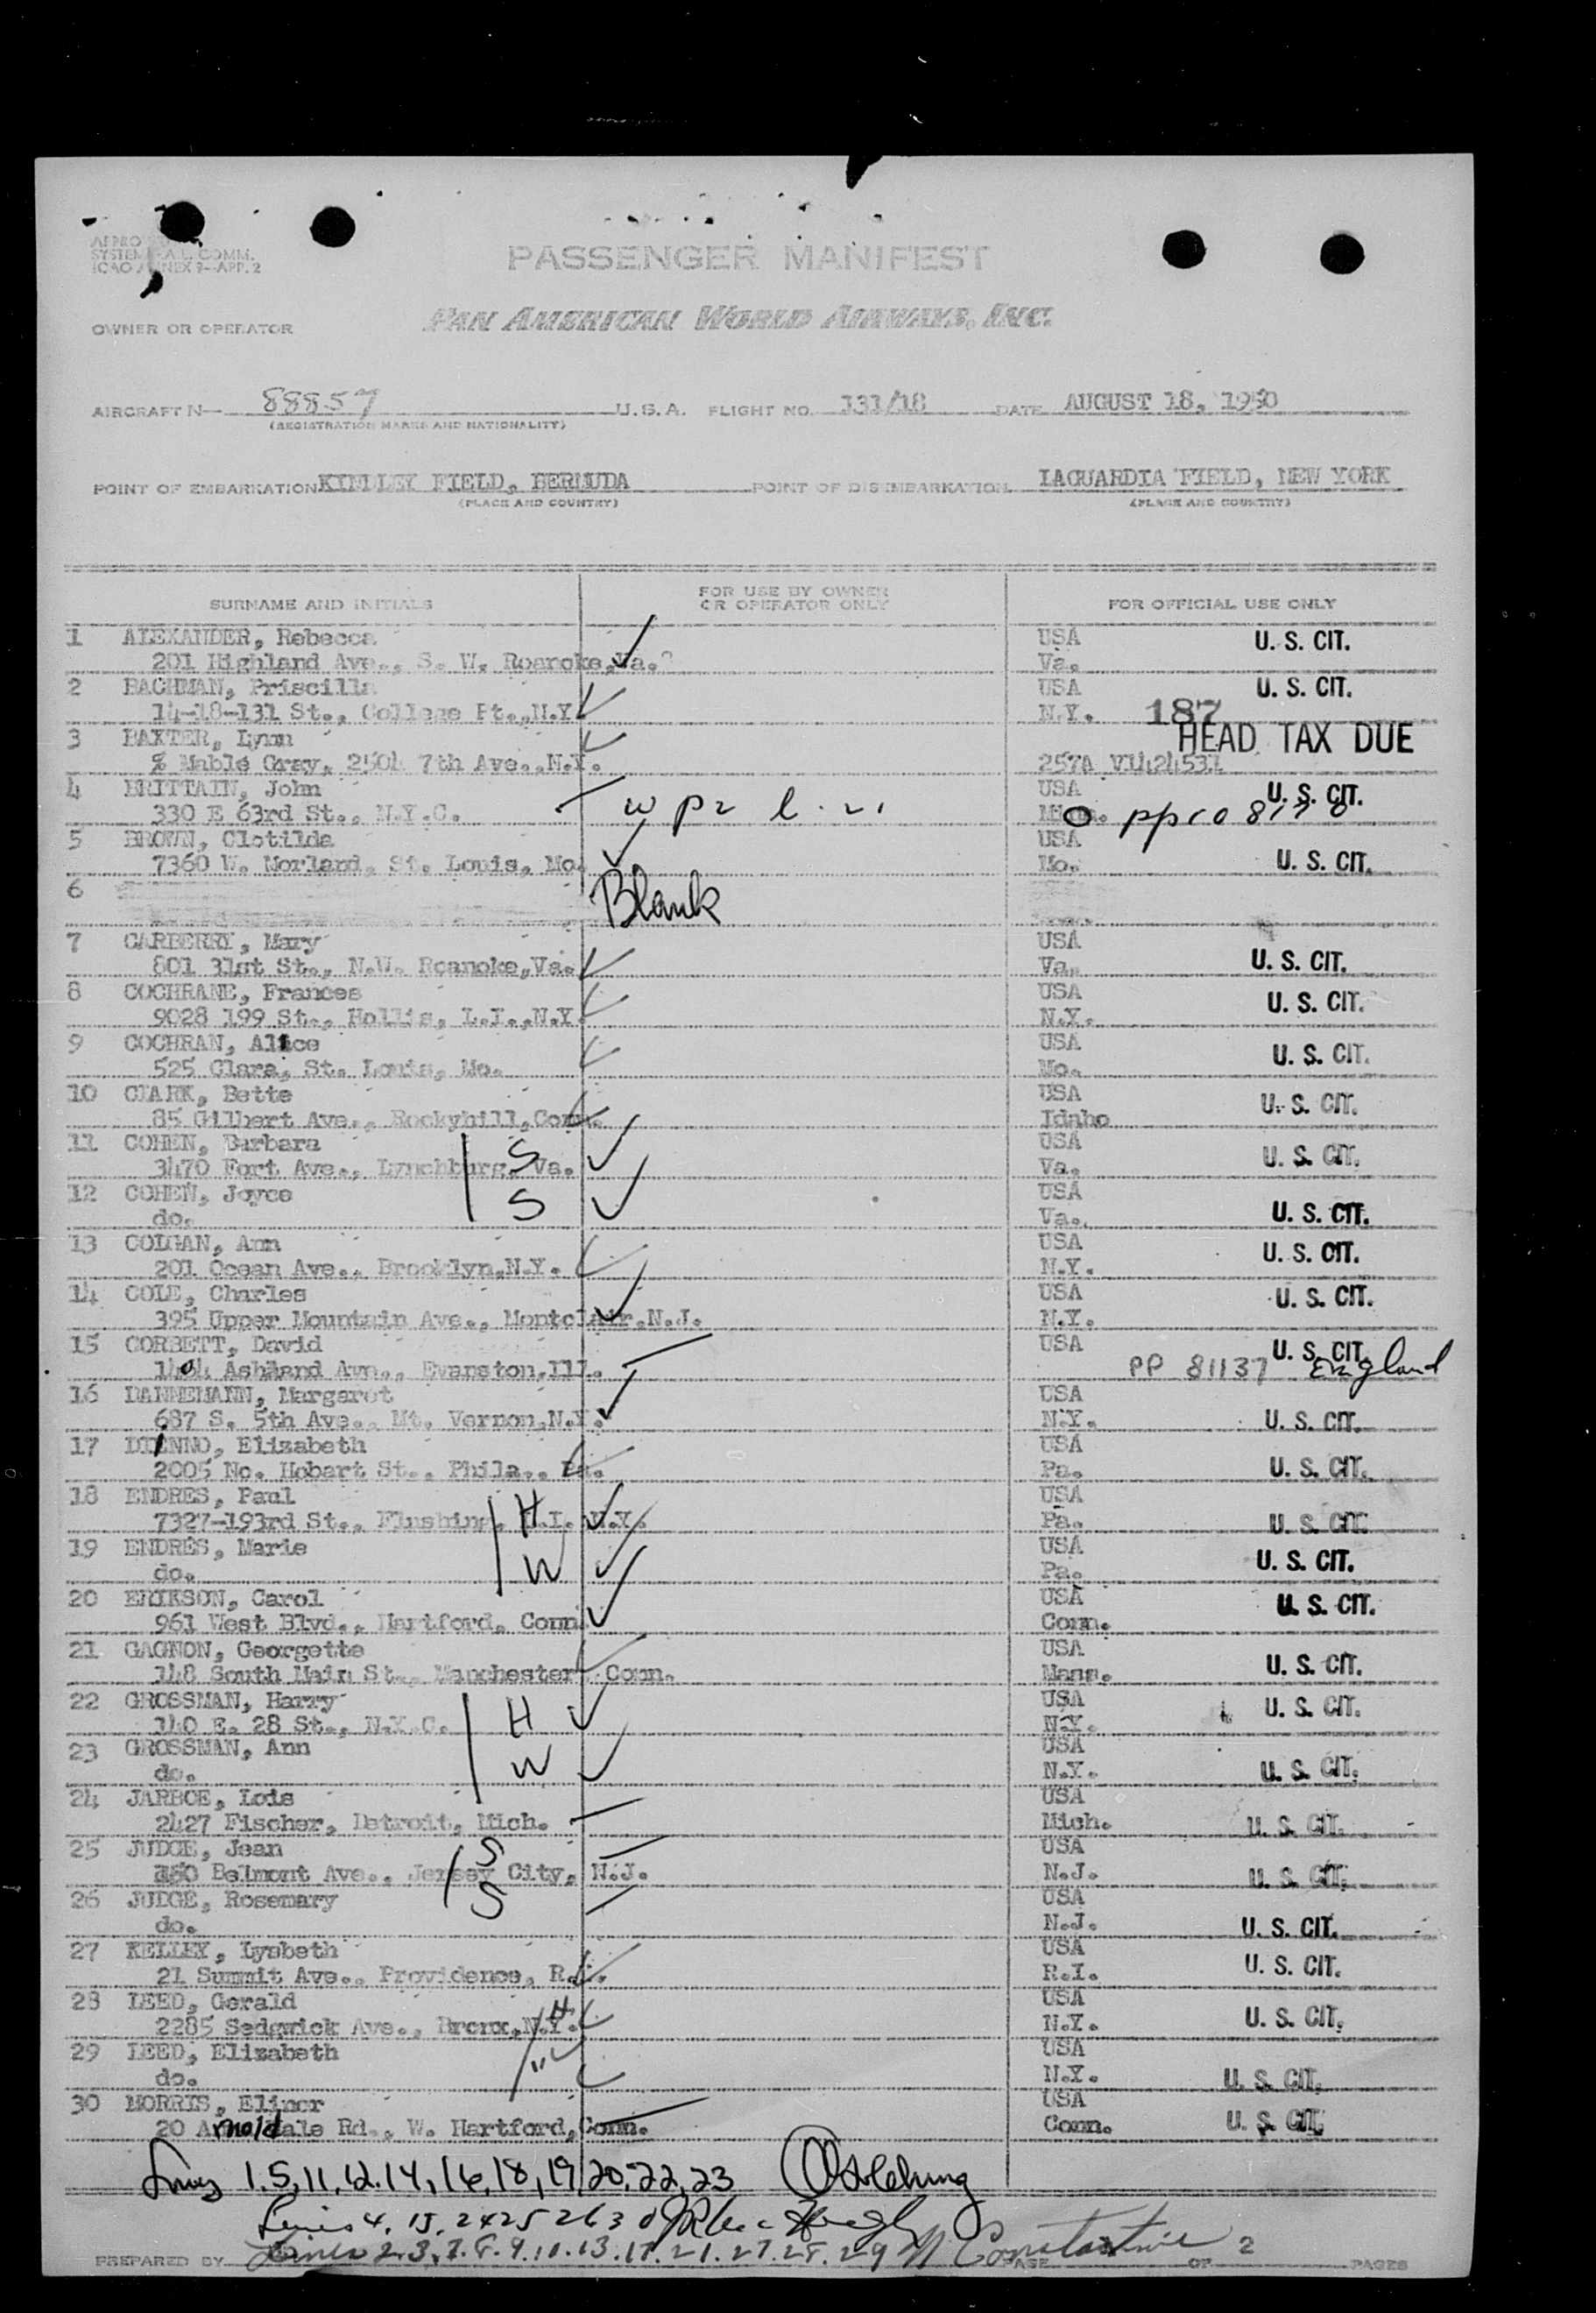 PASSENGER MANIFEST
SYSTEM
OWNER OR OPERATOR PAN AMERICAN WORLD AIRWAYS, INC.
AIRCRAFT N— 88857 U.S.A. FLIGHT NO. 131/18 DATE AUGUST 18, 1950
(REGISTRATION MARKS AND NATIONALITY)
POINT OF EMBARKATION KINDLEY FIELD, BERMUDA POINT OF DISEMBARKATION LAGUARDIA FIELD, NEW YORK
(PLACE AND COUNTRY) (PLACE AND COUNTRY)
SURNAME AND INITIALS FOR USE BY OWNER OR OPERATOR ONLY FOR OFFICIAL USE ONLY
1 ALEXANDER, Rebecca USA U. S. CIT.
201 Highland Ave., S. W. Roanoke, Va. Va.
2 BACHMAN, Priscilla USA U. S. CIT.
14-18-131 St., College Pt., N.Y. N.Y. 187
3 BAXTER, Lynn HEAD TAX DUE
% Mable Gray, 2504 7th Ave., N.Y. 257A V1424531
4 BRITTAIN, John USA U. S. CIT.
330 E 63rd St., N.Y.C.
5 BROWN, Clotilda USA
7360 W. Norland, St. Louis, Mo. Mo. U. S. CIT.
6 Blank
7 CARBERRY, Mary USA
801 31st St., N.W. Roanoke, Va. Va. U. S. CIT.
8 COCHRANE, Frances USA U. S. CIT.
9028 199 St., Hollis, L.I., N.Y. N.Y.
9 COCHRAN, Alice USA
525 Clara, St. Louis, Mo. Mo. U. S. CIT.
10 CLARK, Bette USA U. S. CIT.
85 Gilbert Ave., Rockyhill, Conn. Idaho
11 COHEN, Barbara S USA
3470 Fort Ave., Lynchburg, Va. Va. U. S. CIT.
12 COHEN, Joyce S USA
do. Va. U. S. CIT.
13 COLGAN, Ann USA U. S. CIT.
201 Ocean Ave., Brooklyn, N.Y. N.Y.
14 COLE, Charles USA U. S. CIT.
395 Upper Mountain Ave., Montclair, N.J. N.Y.
15 CORBETT, David USA U. S. CIT.
1404 Ashland Ave., Evanston, Ill. PP 81137 England
16 DANNEMANN, Margaret USA
687 S. 5th Ave., Mt. Vernon, N.Y. N.Y. U. S. CIT.
17 DIENNO, Elizabeth USA
2005 No. Hobart St., Phila., Pa. Pa. U. S. CIT.
18 ENDRES, Paul H USA
7327-193rd St., Flushing, L.I. N.Y. Pa. U. S. CIT.
19 ENDRES, Marie W USA
do. Pa. U. S. CIT.
20 ERIKSON, Carol USA U. S. CIT.
961 West Blvd., Hartford, Conn. Conn.
21 GAGNON, Georgette USA
148 South Main St., Manchester, Conn. Mass. U. S. CIT.
22 GROSSMAN, Harry H USA U. S. CIT.
140 E. 28 St., N.Y.C. N.Y.
23 GROSSMAN, Ann W USA
do. N.Y. U. S. CIT.
24 JARBOE, Lois USA
2427 Fischer, Detroit, Mich. Mich. U. S. CIT.
25 JUDGE, Jean S USA
Belmont Ave., Jersey City, N.J. N.J. U. S. CIT.
26 JUDGE, Rosemary S USA
do. N.J. U. S. CIT.
27 KELLEY, Lysbeth USA
21 Summit Ave., Providence, R.I. R.I. U. S. CIT.
28 LEED, Gerald H USA
2285 Sedgwick Ave., Bronx, N.Y. N.Y. U. S. CIT.
29 LEED, Elizabeth USA
do. N.Y. U. S. CIT.
30 MORRIS, Elinor USA
20 Arnoldale Rd., W. Hartford, Conn. Conn. U. S. CIT.
1.5,11,12.14,16,18,19,20,22,23
4. 15. 24 25 26 30
PREPARED BY Lines 2.3.7.8.9.10.13.17.21.27.28.29 Constantine PAGE OF 2 PAGES